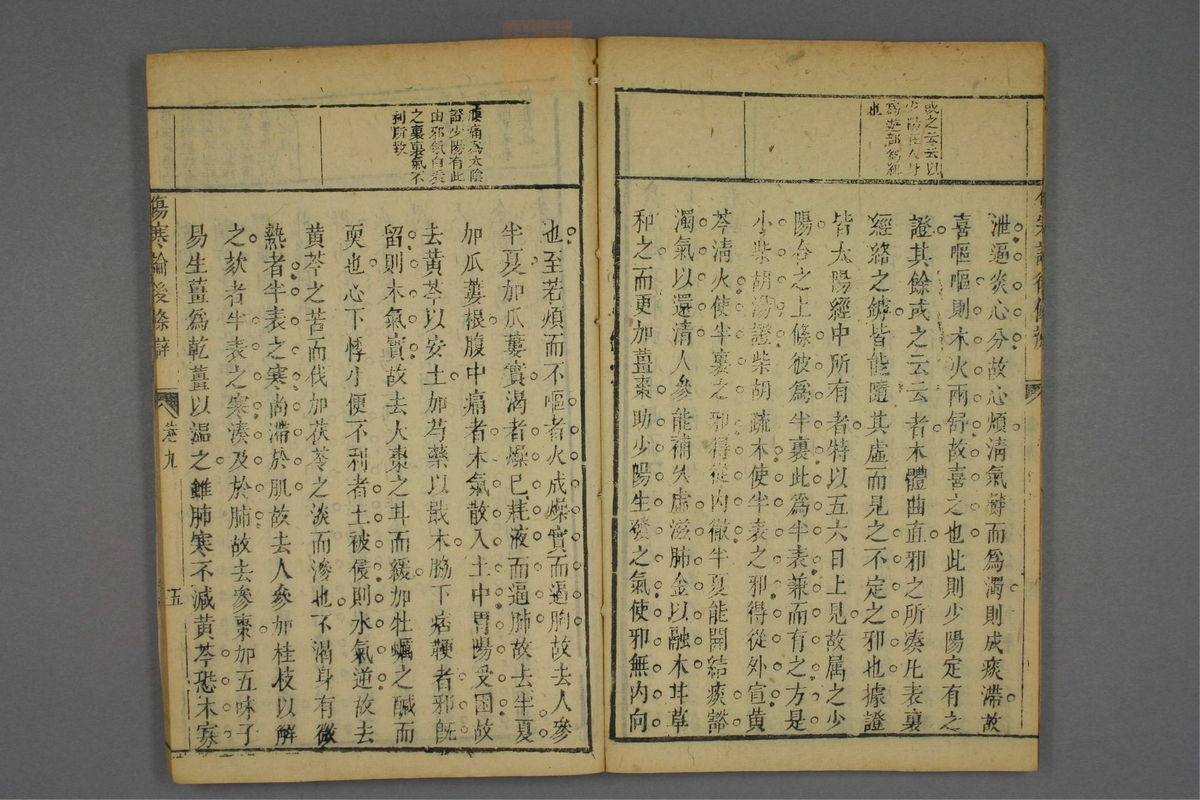 或之云云以
少陽在人身
為遊部為經
也
泄逼炎心分故心煩清氣鬱而為濁則成痰滯故
喜嘔嘔則木火兩舒故喜之也此則少陽定有之
證其餘或之云云者木體曲直邪之所湊凡表裏
經絡之罅皆能隨其虛而見之不定之邪也據證
皆太陽經中所有者特以五六日上見故属之少
陽合之上條彼為半裏此為半表兼而有之方是
小柴胡湯證柴胡疏木使半表之邪得從外宣黃
芩清火使半裏之邪得從内徹半夏能開結痰豁
濁氣以還清人參能補久虛滋肺金以融木甘草
和之而更加薑棗助少陽生發之氣使邪無内向
腹痛為太陰
證少陽有此
由邪氣自表
之裏裏氣不
利所致
也至若煩而不嘔者火成燥實而逼胸故去人參
半夏加瓜蔞實渴者燥已耗液而逼肺故去半夏
加瓜蔞根腹中痛者木氣散入土中胃陽受困故
去黃芩以安土加芍藥以戢木脇下痞鞕者邪既
留則木氣實故去大棗之甘而緩加牡蠣之鹹而
耎也心下悸小便不利者土被侵則水氣逆故去
黃芩之苦而伐加茯苓之淡而滲也不渴身有微
熱者半表之寒尚滯於肌故去人參加桂枝以解
之欬者半表之寒湊及於肺故去參棗加五味子
易生薑為乾薑以溫之雖肺寒不減黃芩恐木寡
傷寒論後條辯
卷九
五